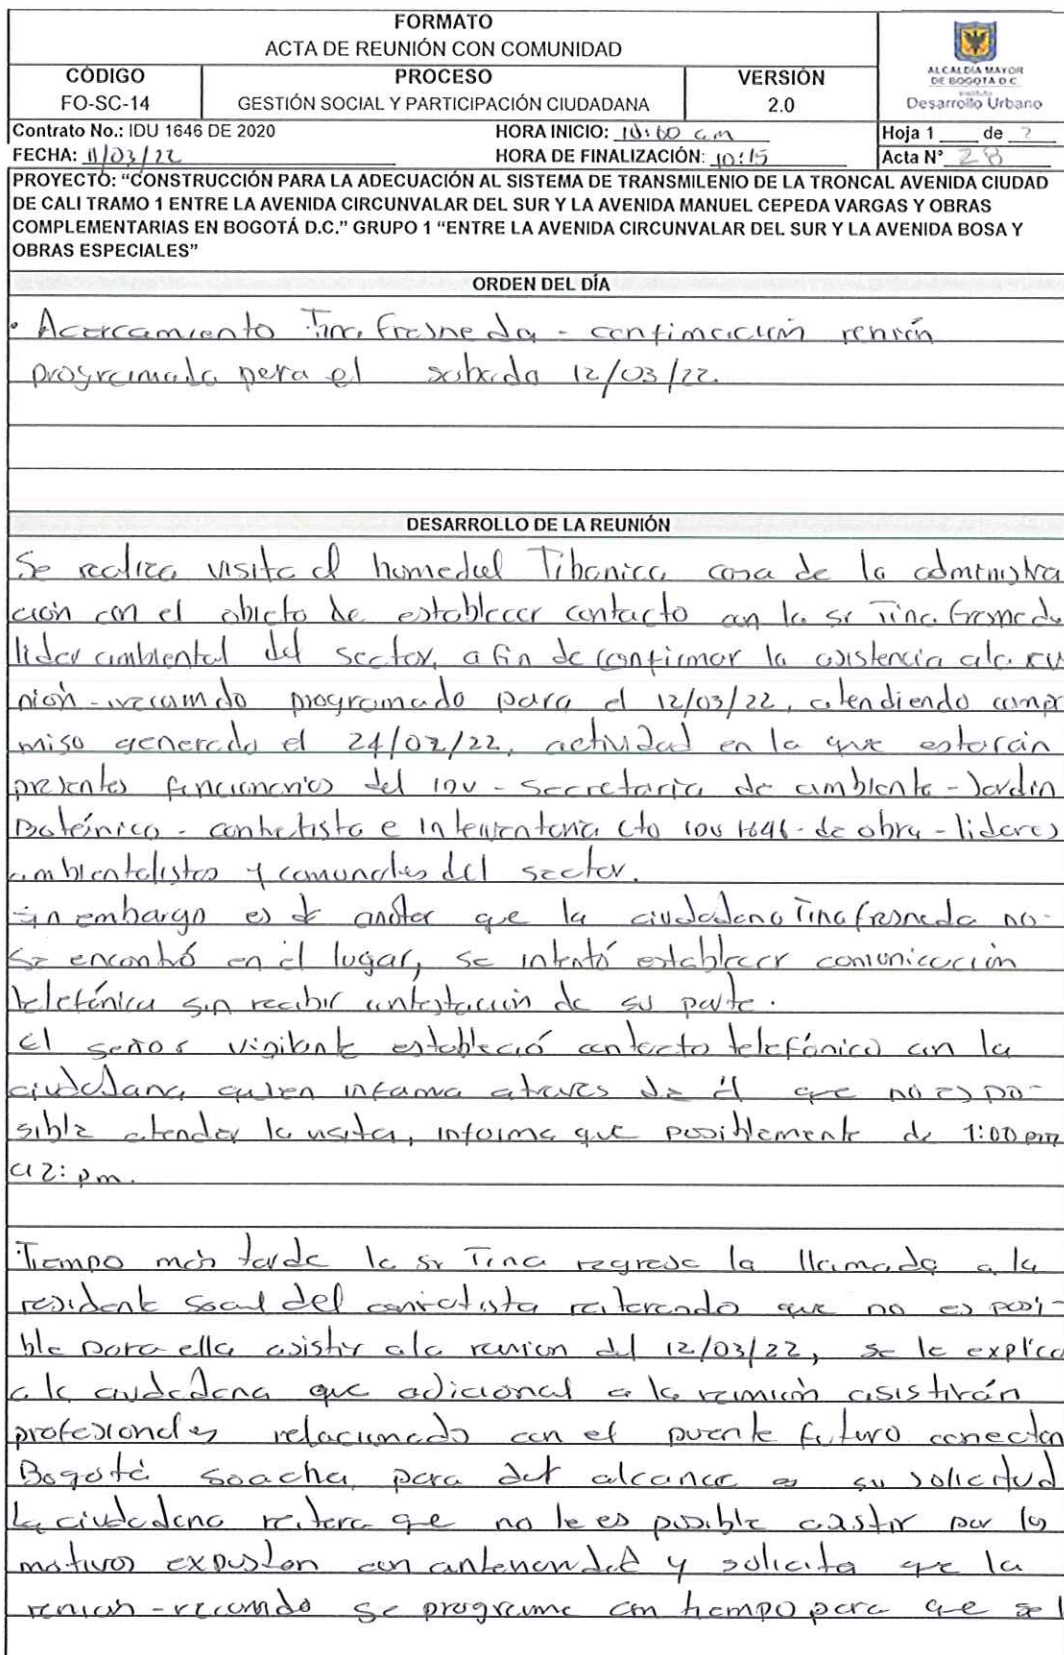 FORMATO
ACTA DE REUNIÓN CON COMUNIDAD
CÓDIGO
FO-SC-14
PROCESO
GESTIÓN SOCIAL Y PARTICIPACIÓN CIUDADANA
VERSIÓN
2.0
ALCALDÍA MAYOR
DE BOGOTÁ D.C.
Instituto
Desarrollo Urbano
Contrato No.: IDU 1646 DE 2020
HORA INICIO: 10:00 a.m
Hoja 1 de 2
FECHA: 11/03/22
HORA DE FINALIZACIÓN: 10:15
Acta N° 28
PROYECTO: “CONSTRUCCIÓN PARA LA ADECUACIÓN AL SISTEMA DE TRANSMILENIO DE LA TRONCAL AVENIDA CIUDAD
DE CALI TRAMO 1 ENTRE LA AVENIDA CIRCUNVALAR DEL SUR Y LA AVENIDA MANUEL CEPEDA VARGAS Y OBRAS
COMPLEMENTARIAS EN BOGOTÁ D.C.” GRUPO 1 “ENTRE LA AVENIDA CIRCUNVALAR DEL SUR Y LA AVENIDA BOSA Y
OBRAS ESPECIALES”
ORDEN DEL DÍA
• Acercamiento Tina Fresneda - confimación renión
programada para el sabado 12/03/22.
DESARROLLO DE LA REUNIÓN
Se realiza visita al humedal Tibanica casa de la administra
ción con el objeto de establecer contacto con la sr Tina Fresneda
lider ambiental del sector, a fin de confirmar la asistencia a la reu
nión - recorrido programado para el 12/03/22, atendiendo compro
miso generado el 24/02/22, actividad en la que estarán
presentes funcionarios del IDU - Secretaria de ambiente - Jardin
Botánico - contratista e interventoria cto IDU 1646 - de obra - lideres
ambientalistas y comunales del sector.
Sin embargo es de anotar que la ciudadana Tina fresneda no
se encontró en el lugar, se intentó establecer comunicación
telefónica sin recibir contestación de su parte.
El señor vigilante estableció contacto telefónico con la
ciudadana, quien informa atraves de él que no es po-
sible atender la visita, informa que posiblemente de 1:00 pm
a 2: pm.
Tiempo más tarde la sr Tina regresa la llamada a la
residente social del contratista reiterando que no es posi-
ble para ella asistir a la reunion del 12/03/22, se le explica
a la ciudadana que adicional a la reunión asistirán
profesionales relacionado con el puente futuro conectan
Bogotá Soacha, para dar alcance a su solicitud
La ciudadana reitera que no le es posible asistir por los
motivos expuston con anterioridad y solicita que la
renion - recorrido se programe con tiempo para que se